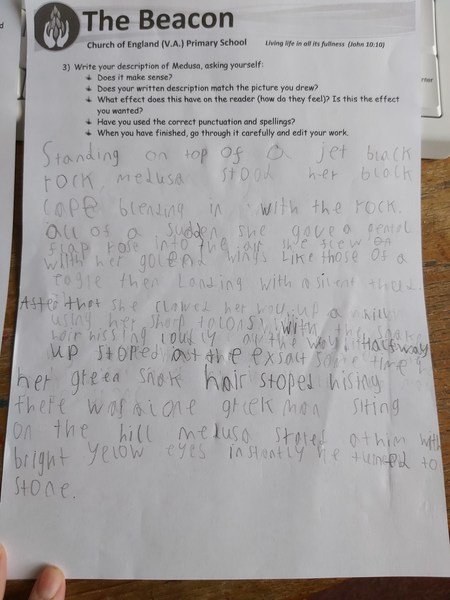 The Beacon
Church of England (V.A.) Primary School Living life in all its fullness (John 10:10)
3) Write your description of Medusa, asking yourself:
Does it make sense?
Does your written description match the picture you drew?
What effect does this have on the reader (how do they feel)? Is this the effect
you wanted?
Have you used the correct punctuation and spellings?
When you have finished, go through it carefully and edit your work.
Standing on top of a jet black
rock medusa stood her black
cape blending in with the rock.
all of a sudden she gave a
flap rose into the air she flew on
with her wings like those of a
eagle then landing with a silent
After that she clawed her way up a
using her sharp talons with the
hair hissing loudly all the way
up stoped at the exsact same time
her green snak hair stoped hising
there was one greek man siting
on the hill medusa stared at him with
bright yelow eyes instantly he turned to
stone.